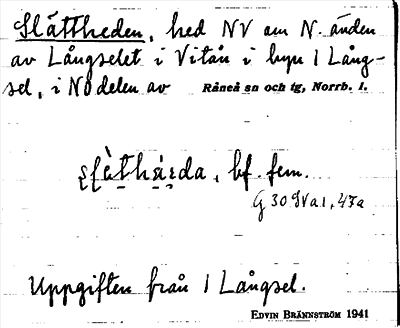 Slättheden, hed NV om N. änden
av Långselet i Vitån i byn 1 Lång-
sel, i NO delen av Råneå sn och tg, Norrb. l.
bf. fem.
G 30 SV a 1, 47a
Uppgiften från 1 Långsel.
EDVIN BRÄNNSTRÖM 1941